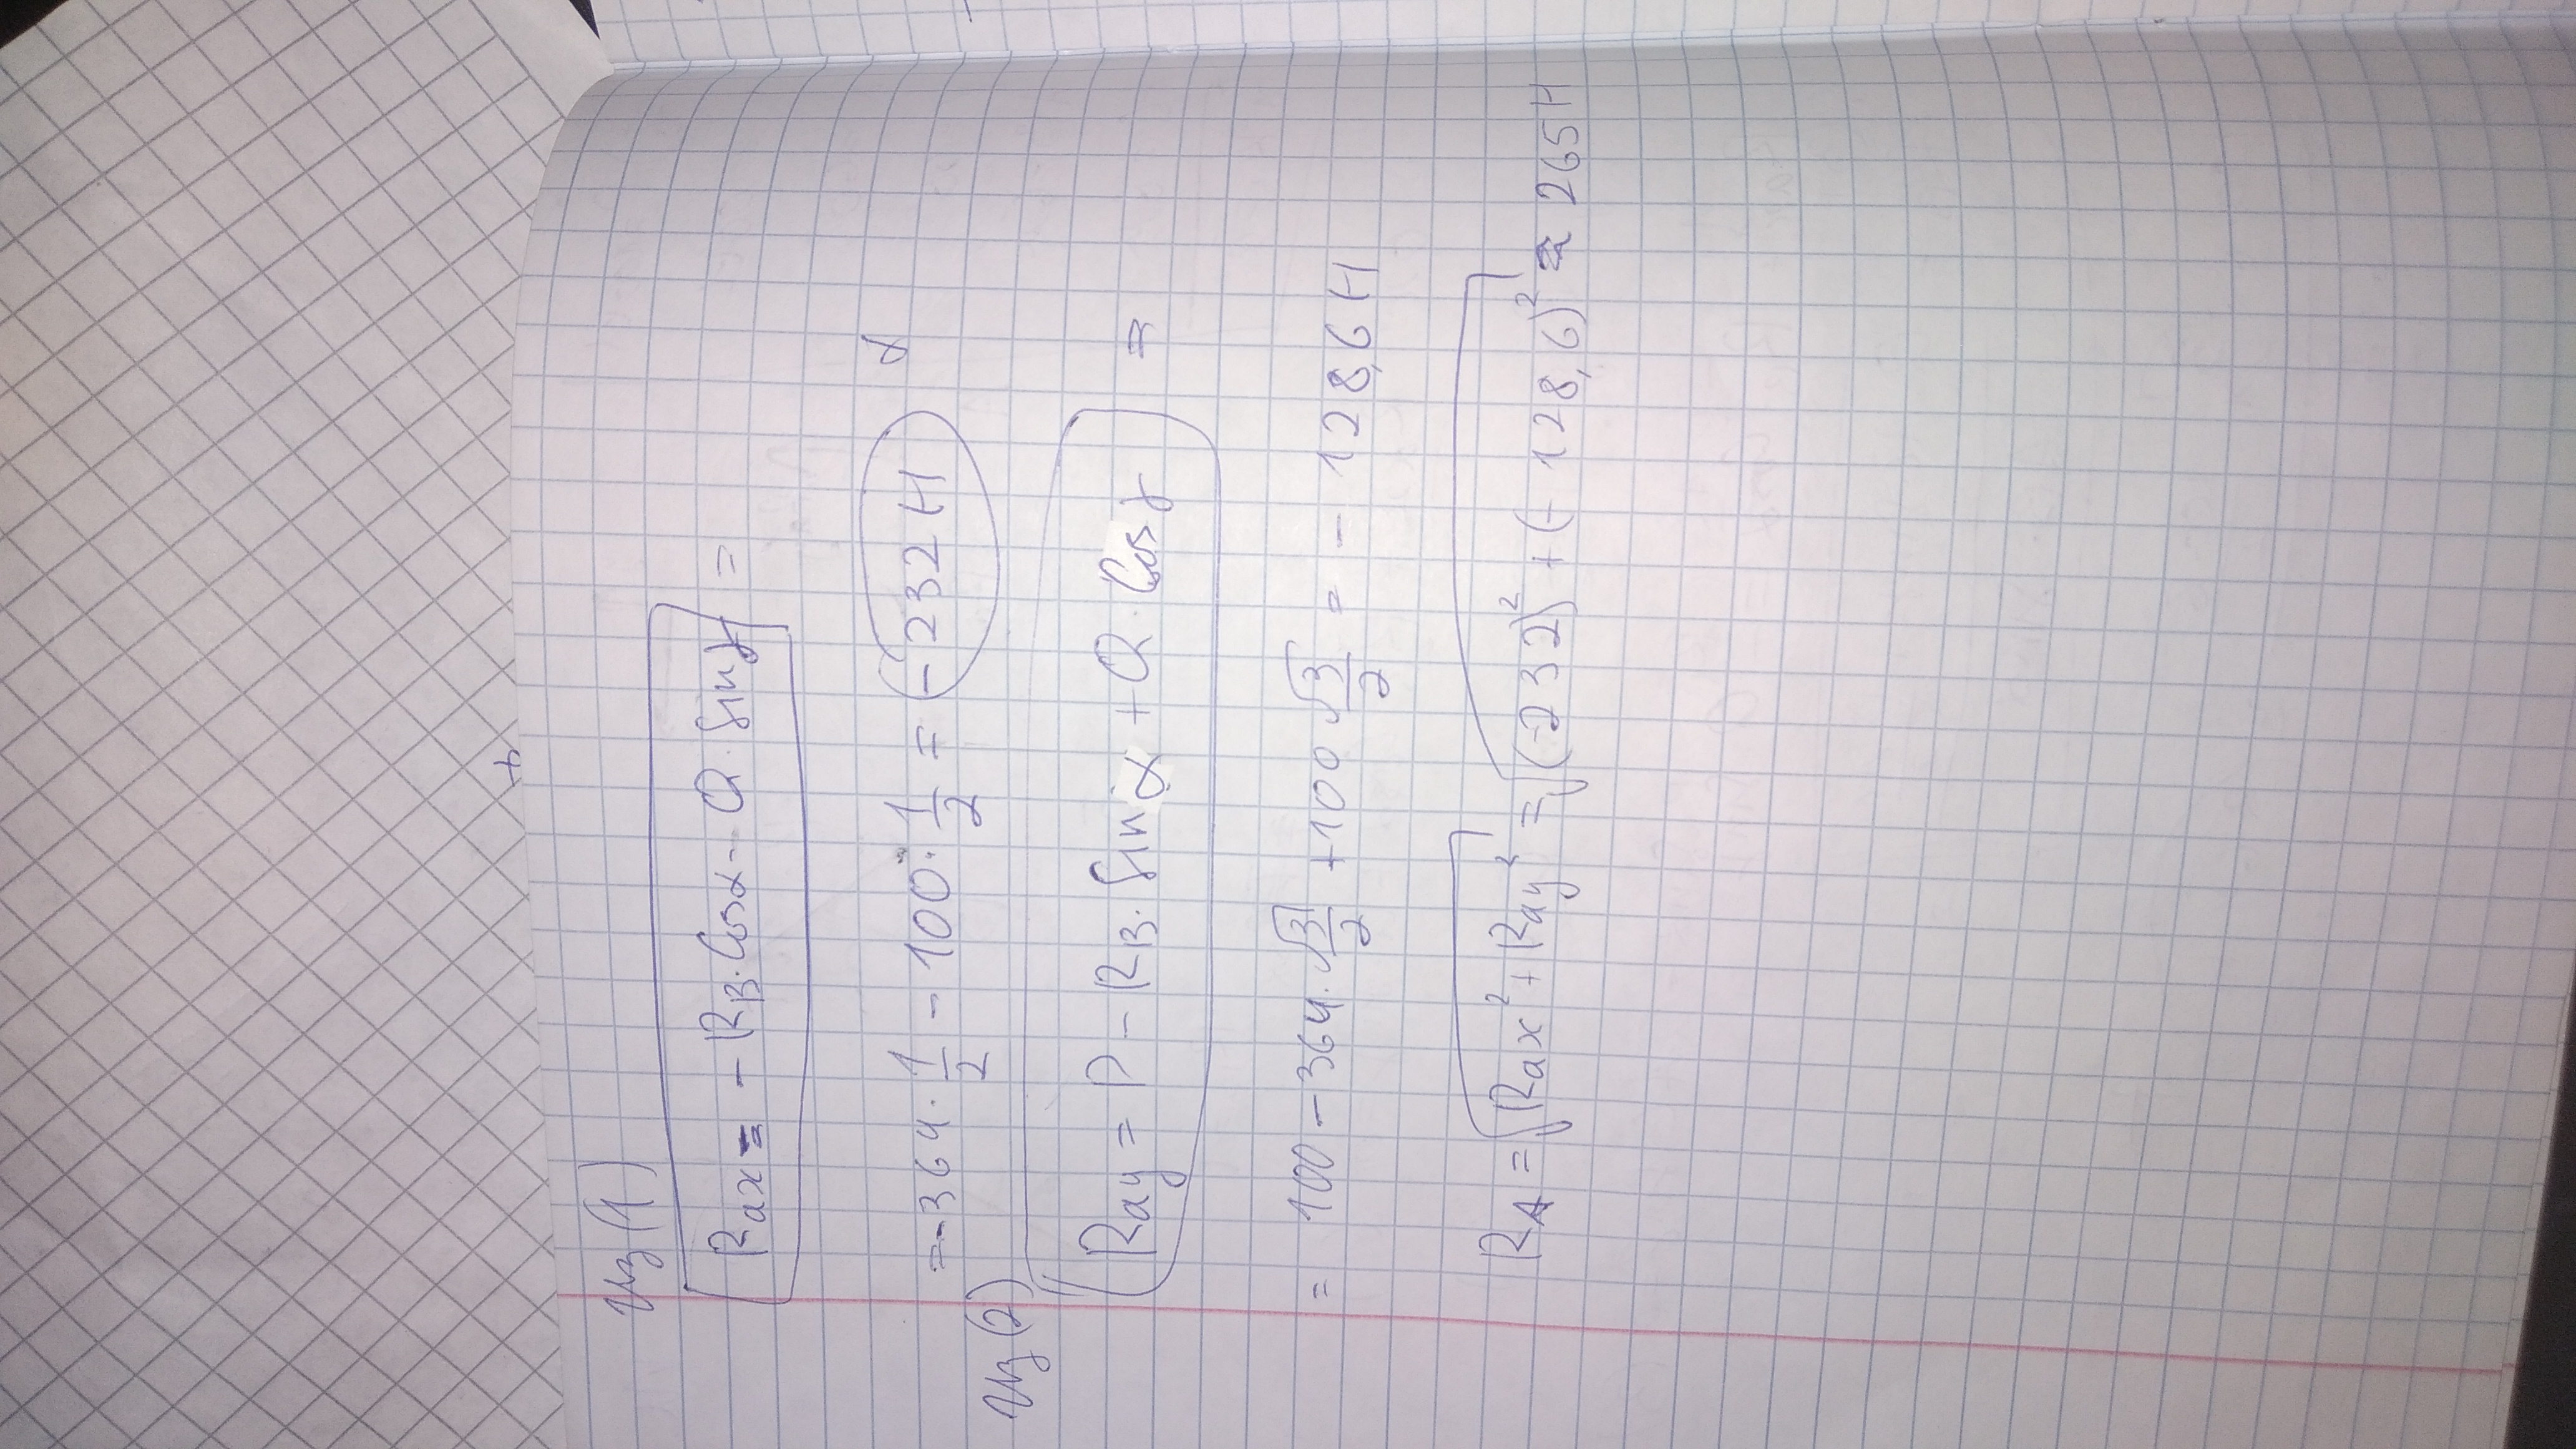 Из (1)
Rax = - RB · Cosα - Q · Sinγ =
= -364 · 1/2 - 100 · 1/2 = -232 H
Из (2)
Ray = P - RB · Sin α + Q · Cos γ =
= 100 - 364 · √3/2 + 100 √3/2 = - 128,6 H
RA = √(Rax² + Ray²) = √((-232)² + (-128,6)²) ≈ 265 H